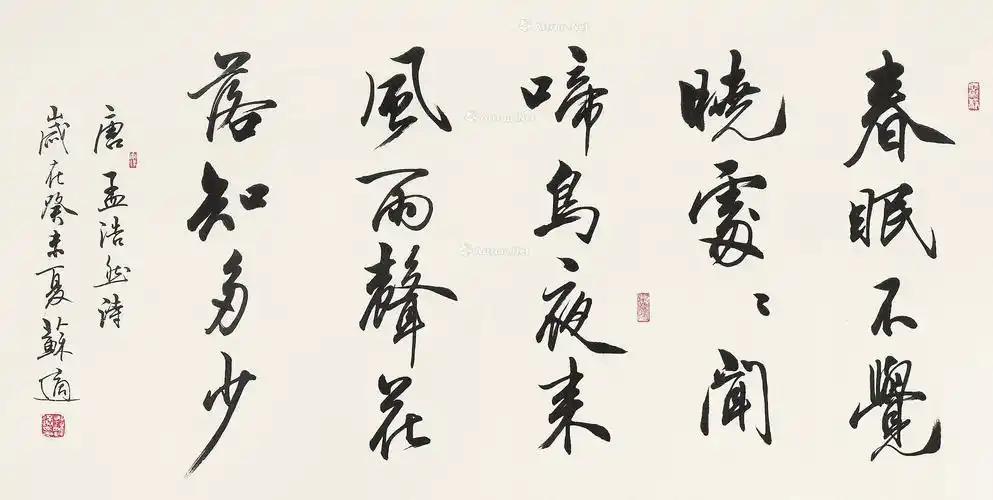 春眠不覺
曉處〻聞
啼鳥夜来
風雨聲花
落知多少
唐孟浩然詩
歲在癸未夏蘇適